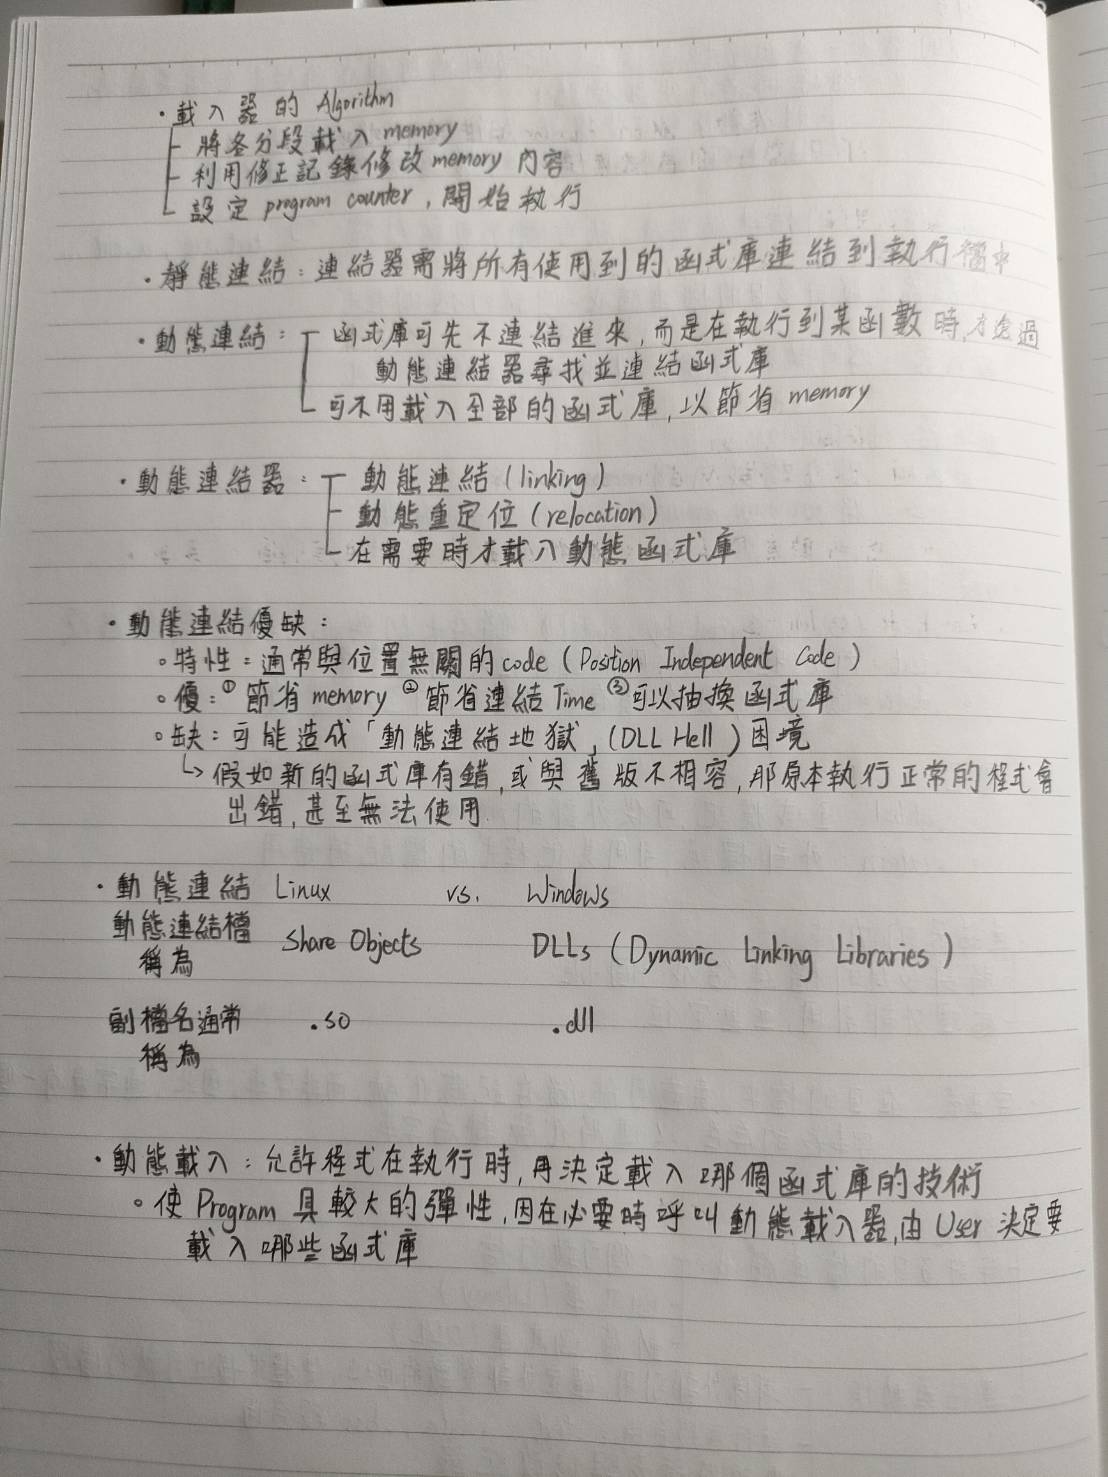 ・載入器的 Algorithm
將各分段載入 memory
利用修正記錄修改 memory 內容
設定 program counter, 開始執行
・靜態連結：連結器需將所有使用到的函式庫連結到執行檔中
・動態連結：函式庫可先不連結進來, 而是在執行到某函數時, 才透過
動態連結器尋找並連結函式庫
可不用載入全部的函式庫, 以節省 memory
・動態連結器：動態連結 (linking)
動態重定位 (relocation)
在需要時才載入動態函式庫
・動態連結優缺：
。特性：通常與位置無關的 code (Position Independent Code)
。優：① 節省 memory ② 節省連結 Time ③ 可以抽換函式庫
。缺：可能造成「動態連結地獄」(DLL Hell) 困境
↳ 假如新的函式庫有錯, 或與舊版不相容, 那原本執行正常的程式會
出錯, 甚至無法使用.
・動態連結 Linux vs. Windows
動態連結檔 Share Objects DLLs (Dynamic Linking Libraries)
稱為
副檔名通常 .so .dll
稱為
・動態載入：允許程式在執行時, 再決定載入哪個函式庫的技術
。使 Program 具較大的彈性, 因在必要時呼叫動態載入器, 由 User 決定要
載入哪些函式庫